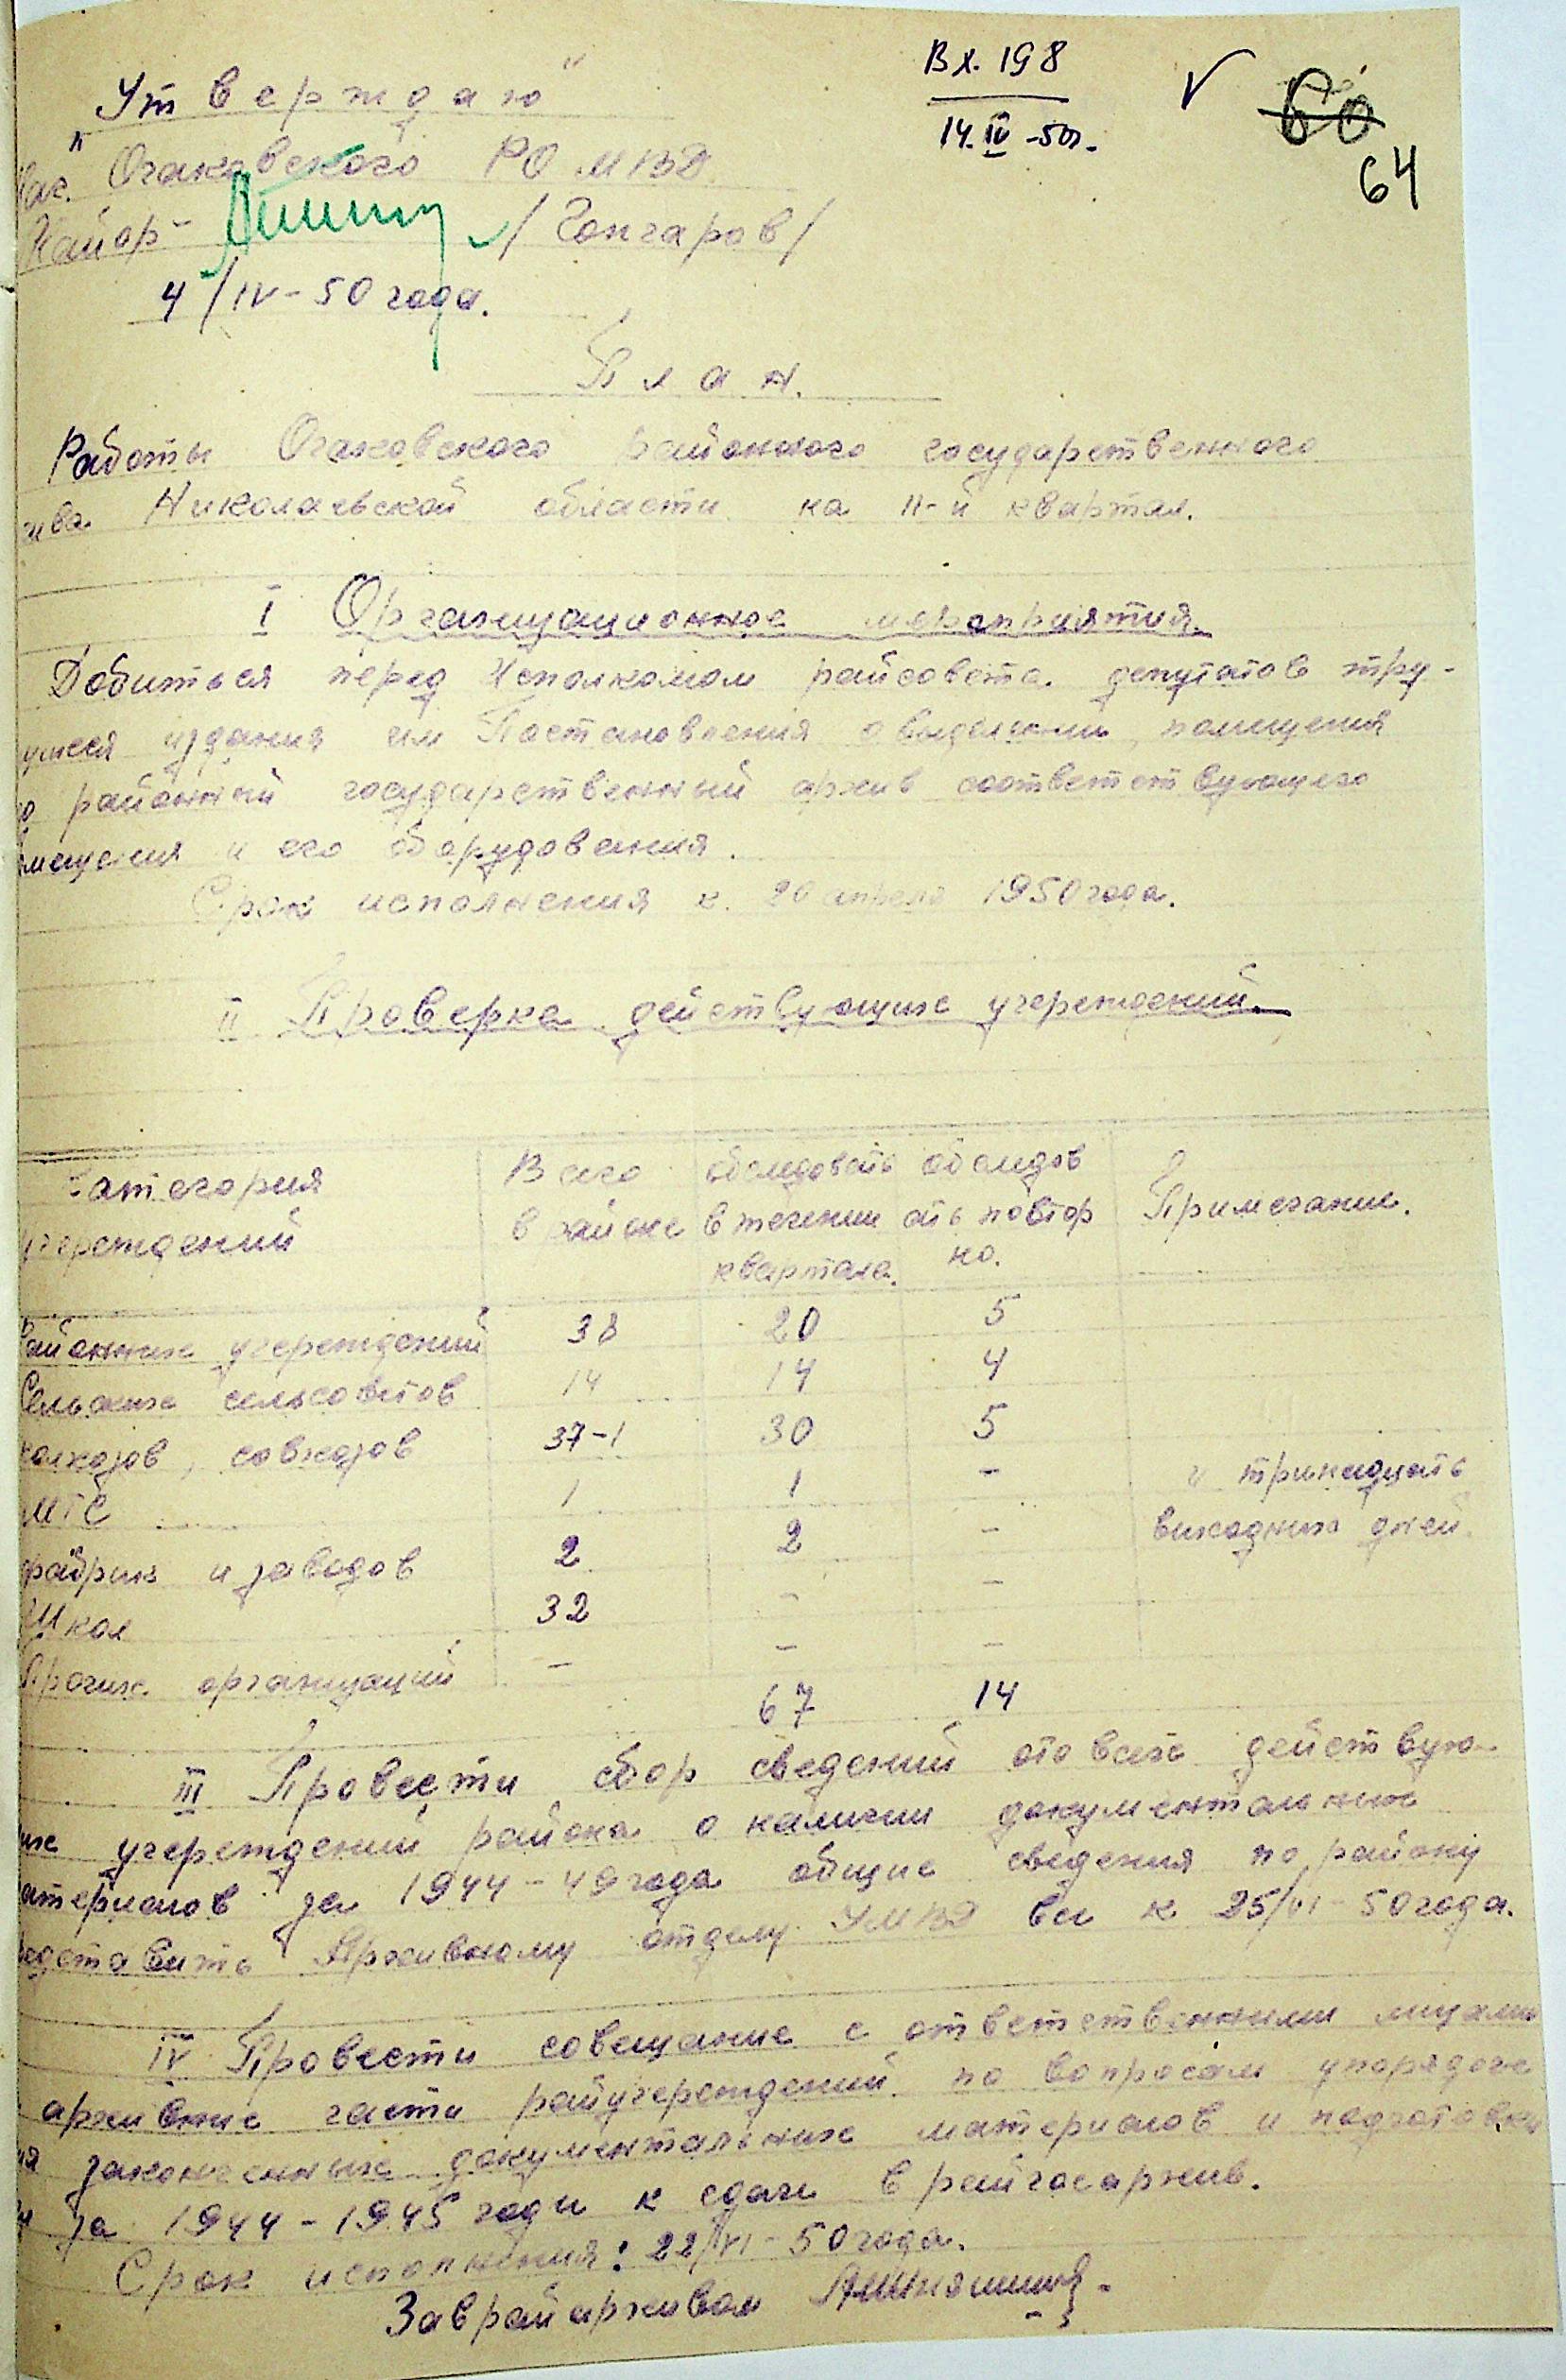 Вх. 198
14.IV-50г.
60
64
"Утверждаю"
Нач. Очаковского РО МВД
Майор /Гончаров/
4/IV-50 года.
План.
Работы Очаковского районного государственного
ива Николаевской области на II-й квартал.
I Организационное мероприятия.
Добиться перед Исполкомом райсовета депутатов тру-
щихся издания им Постановления о выделении помещения
районный государственный архив соответствующего
мещения и его оборудования.
Срок исполнения к 20 апреля 1950 года.
II Проверка действующих учереждений.
Категория учереждений | Всего в районе | обследовать в течении квартала. | обследовать повторно. | Примечание.
Районных учереждений 38 20 5
Сельских сельсоветов 14 14 4
колхозов, совхозов 37-1 30 5
МТС 1 1 -
фабрик и заводов 2 2 -
Школ 32 - -
Прочих организаций - - -
тринадцать
выходных дней.
67 14
III Провести сбор сведений ото всех действую-
их учереждений района о наличии документальных
атериалов за 1944-49 года общие сведения по району
редставить Архивному отделу УМВД к 25/VI-50 года.
IV Провести совещание с ответственными лицами
архивные части райучереждений по вопросам упорядоче
ия законченных документальных материалов и подготовки
за 1944-1945 годы к сдачи в райгосархив.
Срок исполнения: 22/VI-50 года.
Заврайархивом